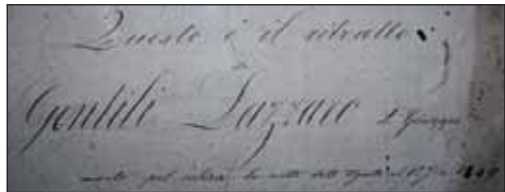 Questo è il ritratto
di
Gentili Lazzaro di Giuseppe
morto pel colera la notte dell'